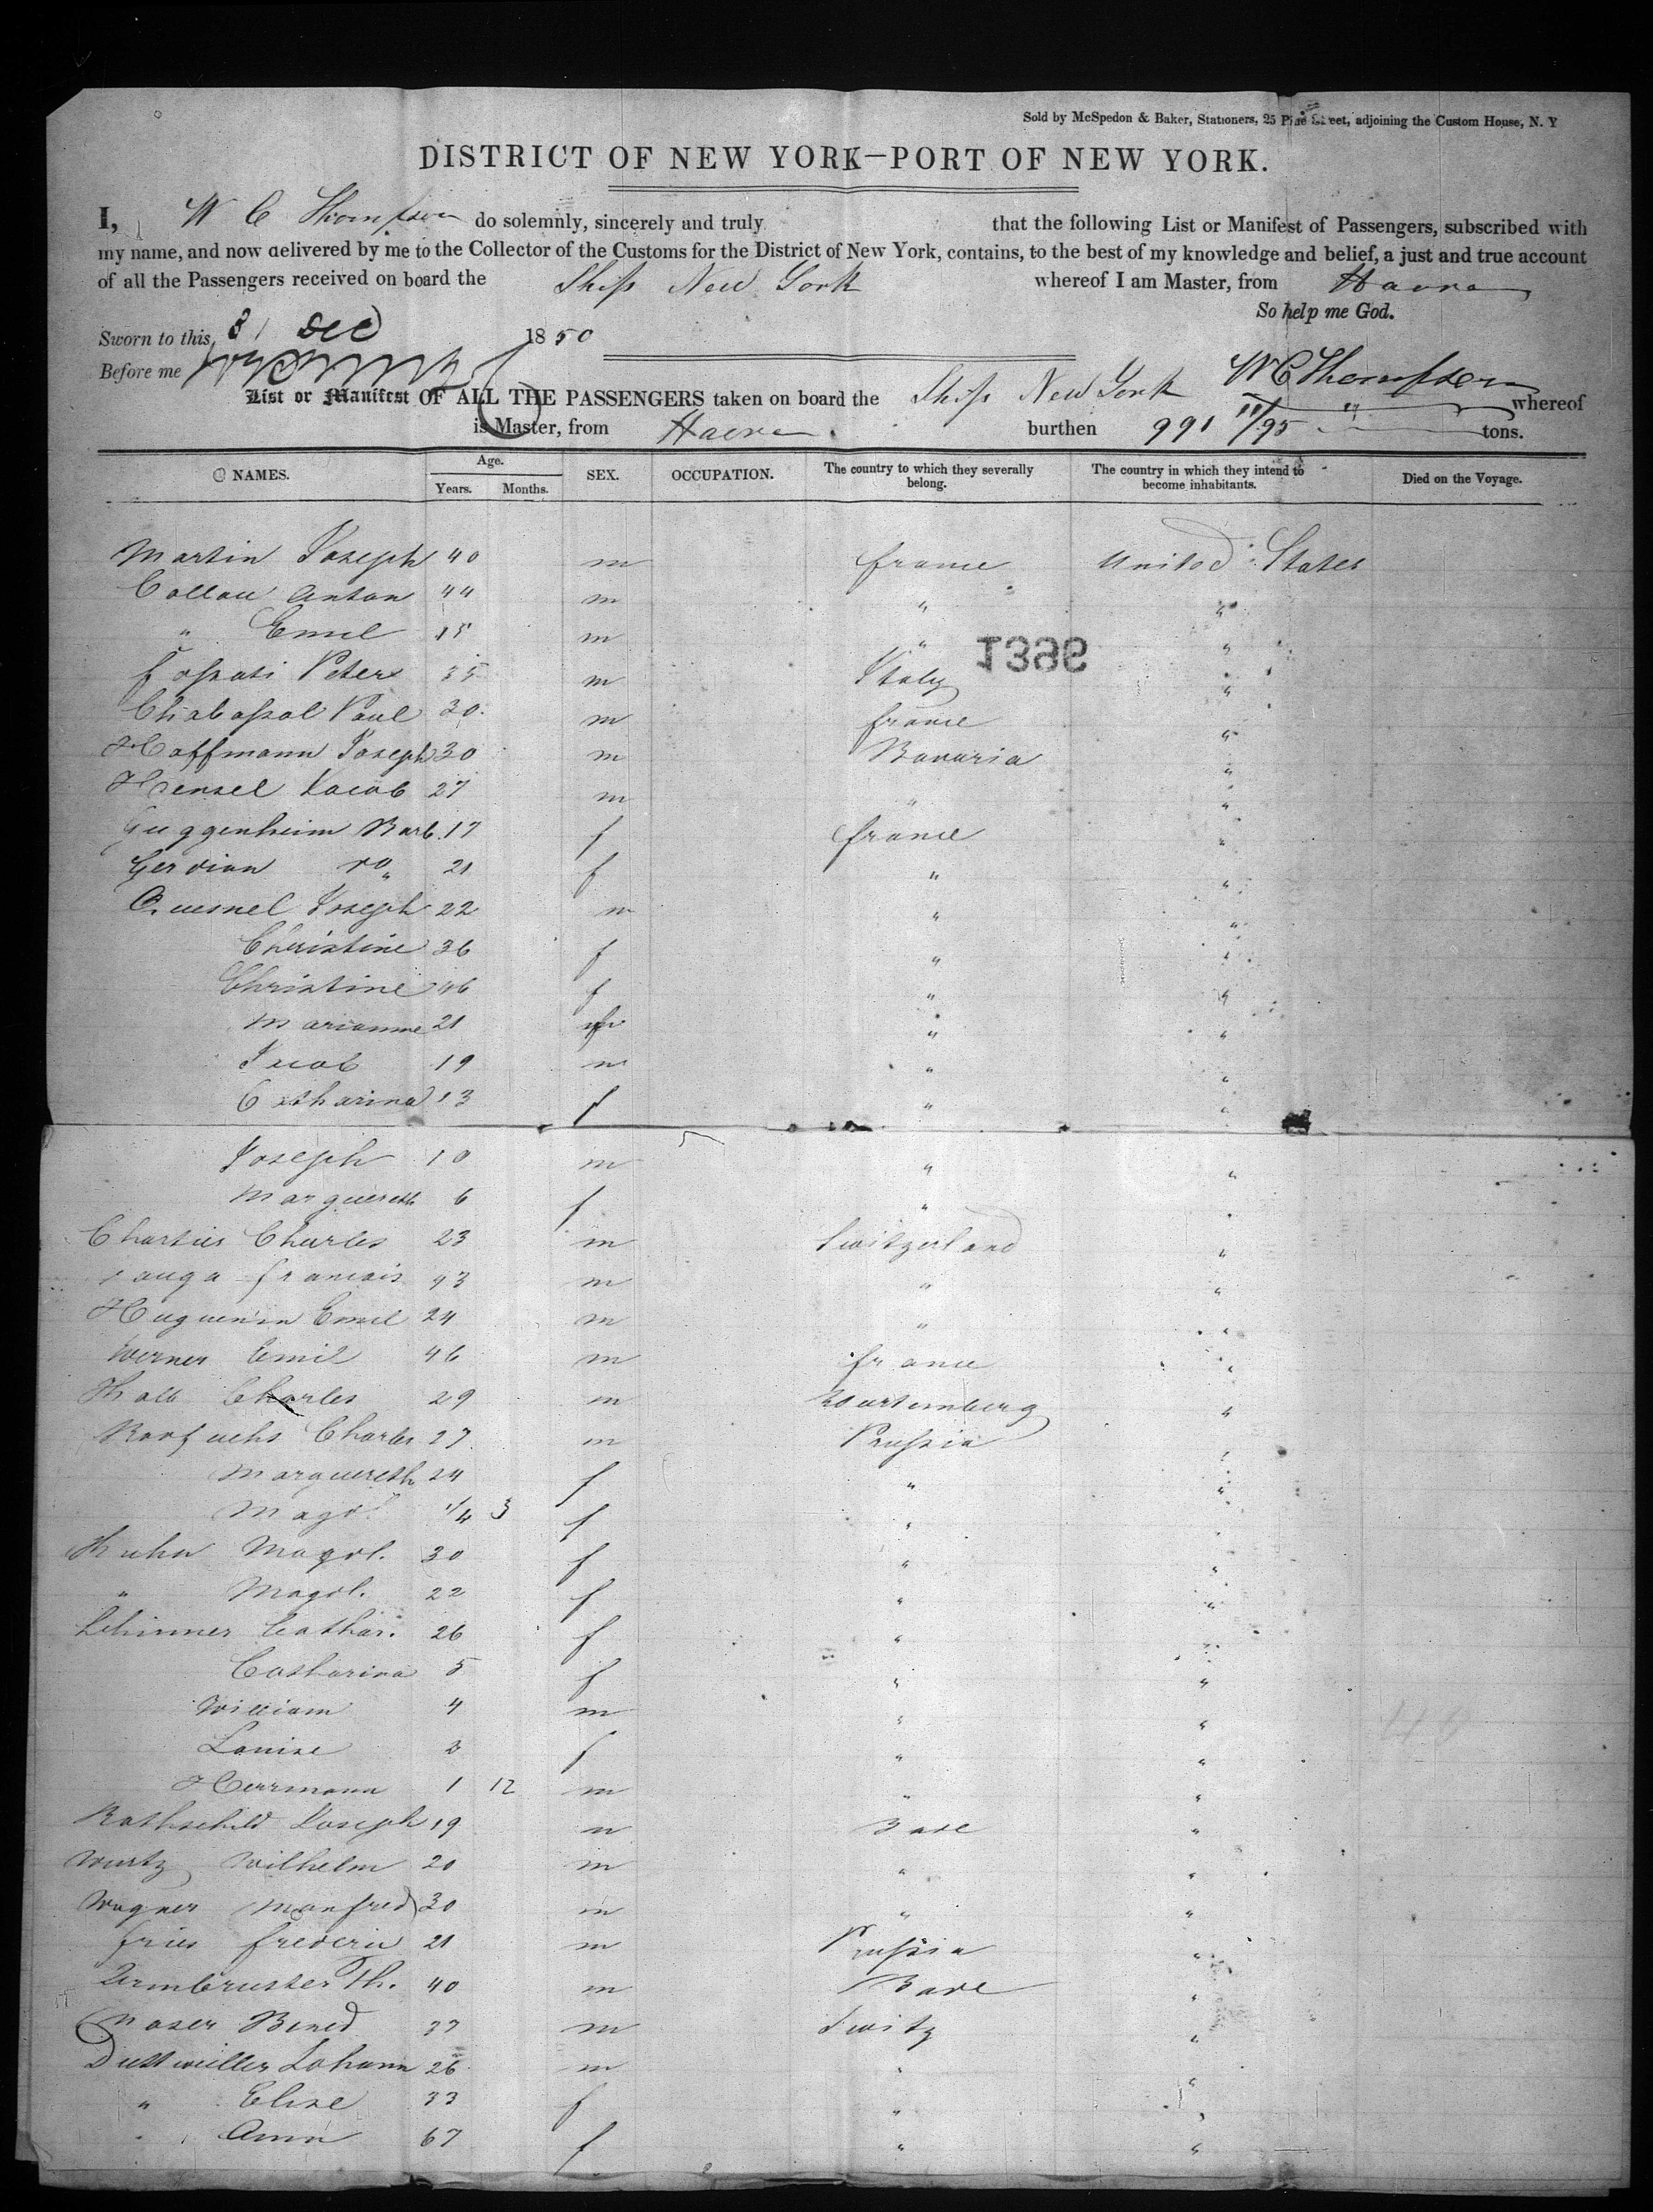 Sold by McSpedon & Baker, Stationers, 25 Pine Street, adjoining the Custom House, N. Y
DISTRICT OF NEW YORK—PORT OF NEW YORK.
I, W C Thompson do solemnly, sincerely and truly that the following List or Manifest of Passengers, subscribed with
my name, and now delivered by me to the Collector of the Customs for the District of New York, contains, to the best of my knowledge and belief, a just and true account
of all the Passengers received on board the Ship New York whereof I am Master, from Havre
So help me God.
Sworn to this 31 Dec 1850
Before me
W C Thompson
List or Manifest OF ALL THE PASSENGERS taken on board the Ship New York whereof
is Master, from Havre burthen 991 11/95 tons.
NAMES. Age. Years. Months. SEX. OCCUPATION. The country to which they severally belong. The country in which they intend to become inhabitants. Died on the Voyage.
Martin Joseph 40 m france United States
Collau Anton 44 m " "
" Emil 15 m " "
1396
Peter 35 m Italy "
Chabassol Paul 30 m france "
Hoffmann Joseph 30 m Bavaria "
Hensel Jacob 27 m " "
Guggenheim Barb. 17 f france "
Gerdian 21 f " "
Quesnel Joseph 22 m " "
Christine 36 f " "
Christine 46 f " "
Marianne 21 f " "
Jacob 19 m " "
Catharina 13 f " "
Joseph 10 m " "
Marguereth 6 f " "
Charles 23 m Switzerland "
francois 43 m " "
Huguenin Emil 24 m " "
Werner Emil 46 m france "
Charles 29 m Wurtemberg "
Charles 27 m Prussia "
Marguereth 24 f " "
Magd. 1/4 3 f " "
Kuhn Magdl. 30 f " "
" Magdl. 22 f " "
Schirmer Cathar. 26 f " "
Catharina 5 f " "
William 4 m " "
Louise 3 f " "
Herrmann 1 12 m " "
Rothschild Joseph 19 m Bade "
Wurtz Wilhelm 20 m " "
Wagner Manfred 30 m " "
fries frederic 21 m Prussia "
Armbruster Th. 40 m Bade "
Moser Bened 37 m Switz "
Duttweiller Johann 26 m " "
" Elise 33 f " "
" Ann 67 f " "